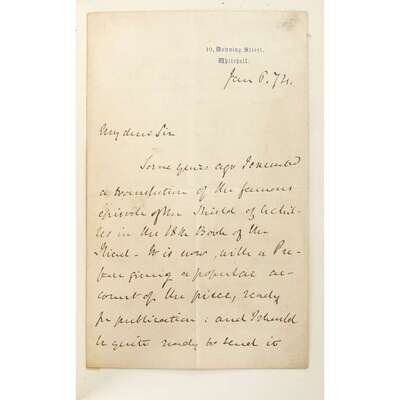 10, Downing Street,
Whitehall.
Jan 6. 74.
My dear Sir
Some years ago I executed
a translation of the famous
episode of the Shield of Achil-
les in the 18th Book of the
Iliad. It is now, with a Pre-
face giving a popular ac-
count of the piece, ready
for publication: and I should
be quite ready to send it